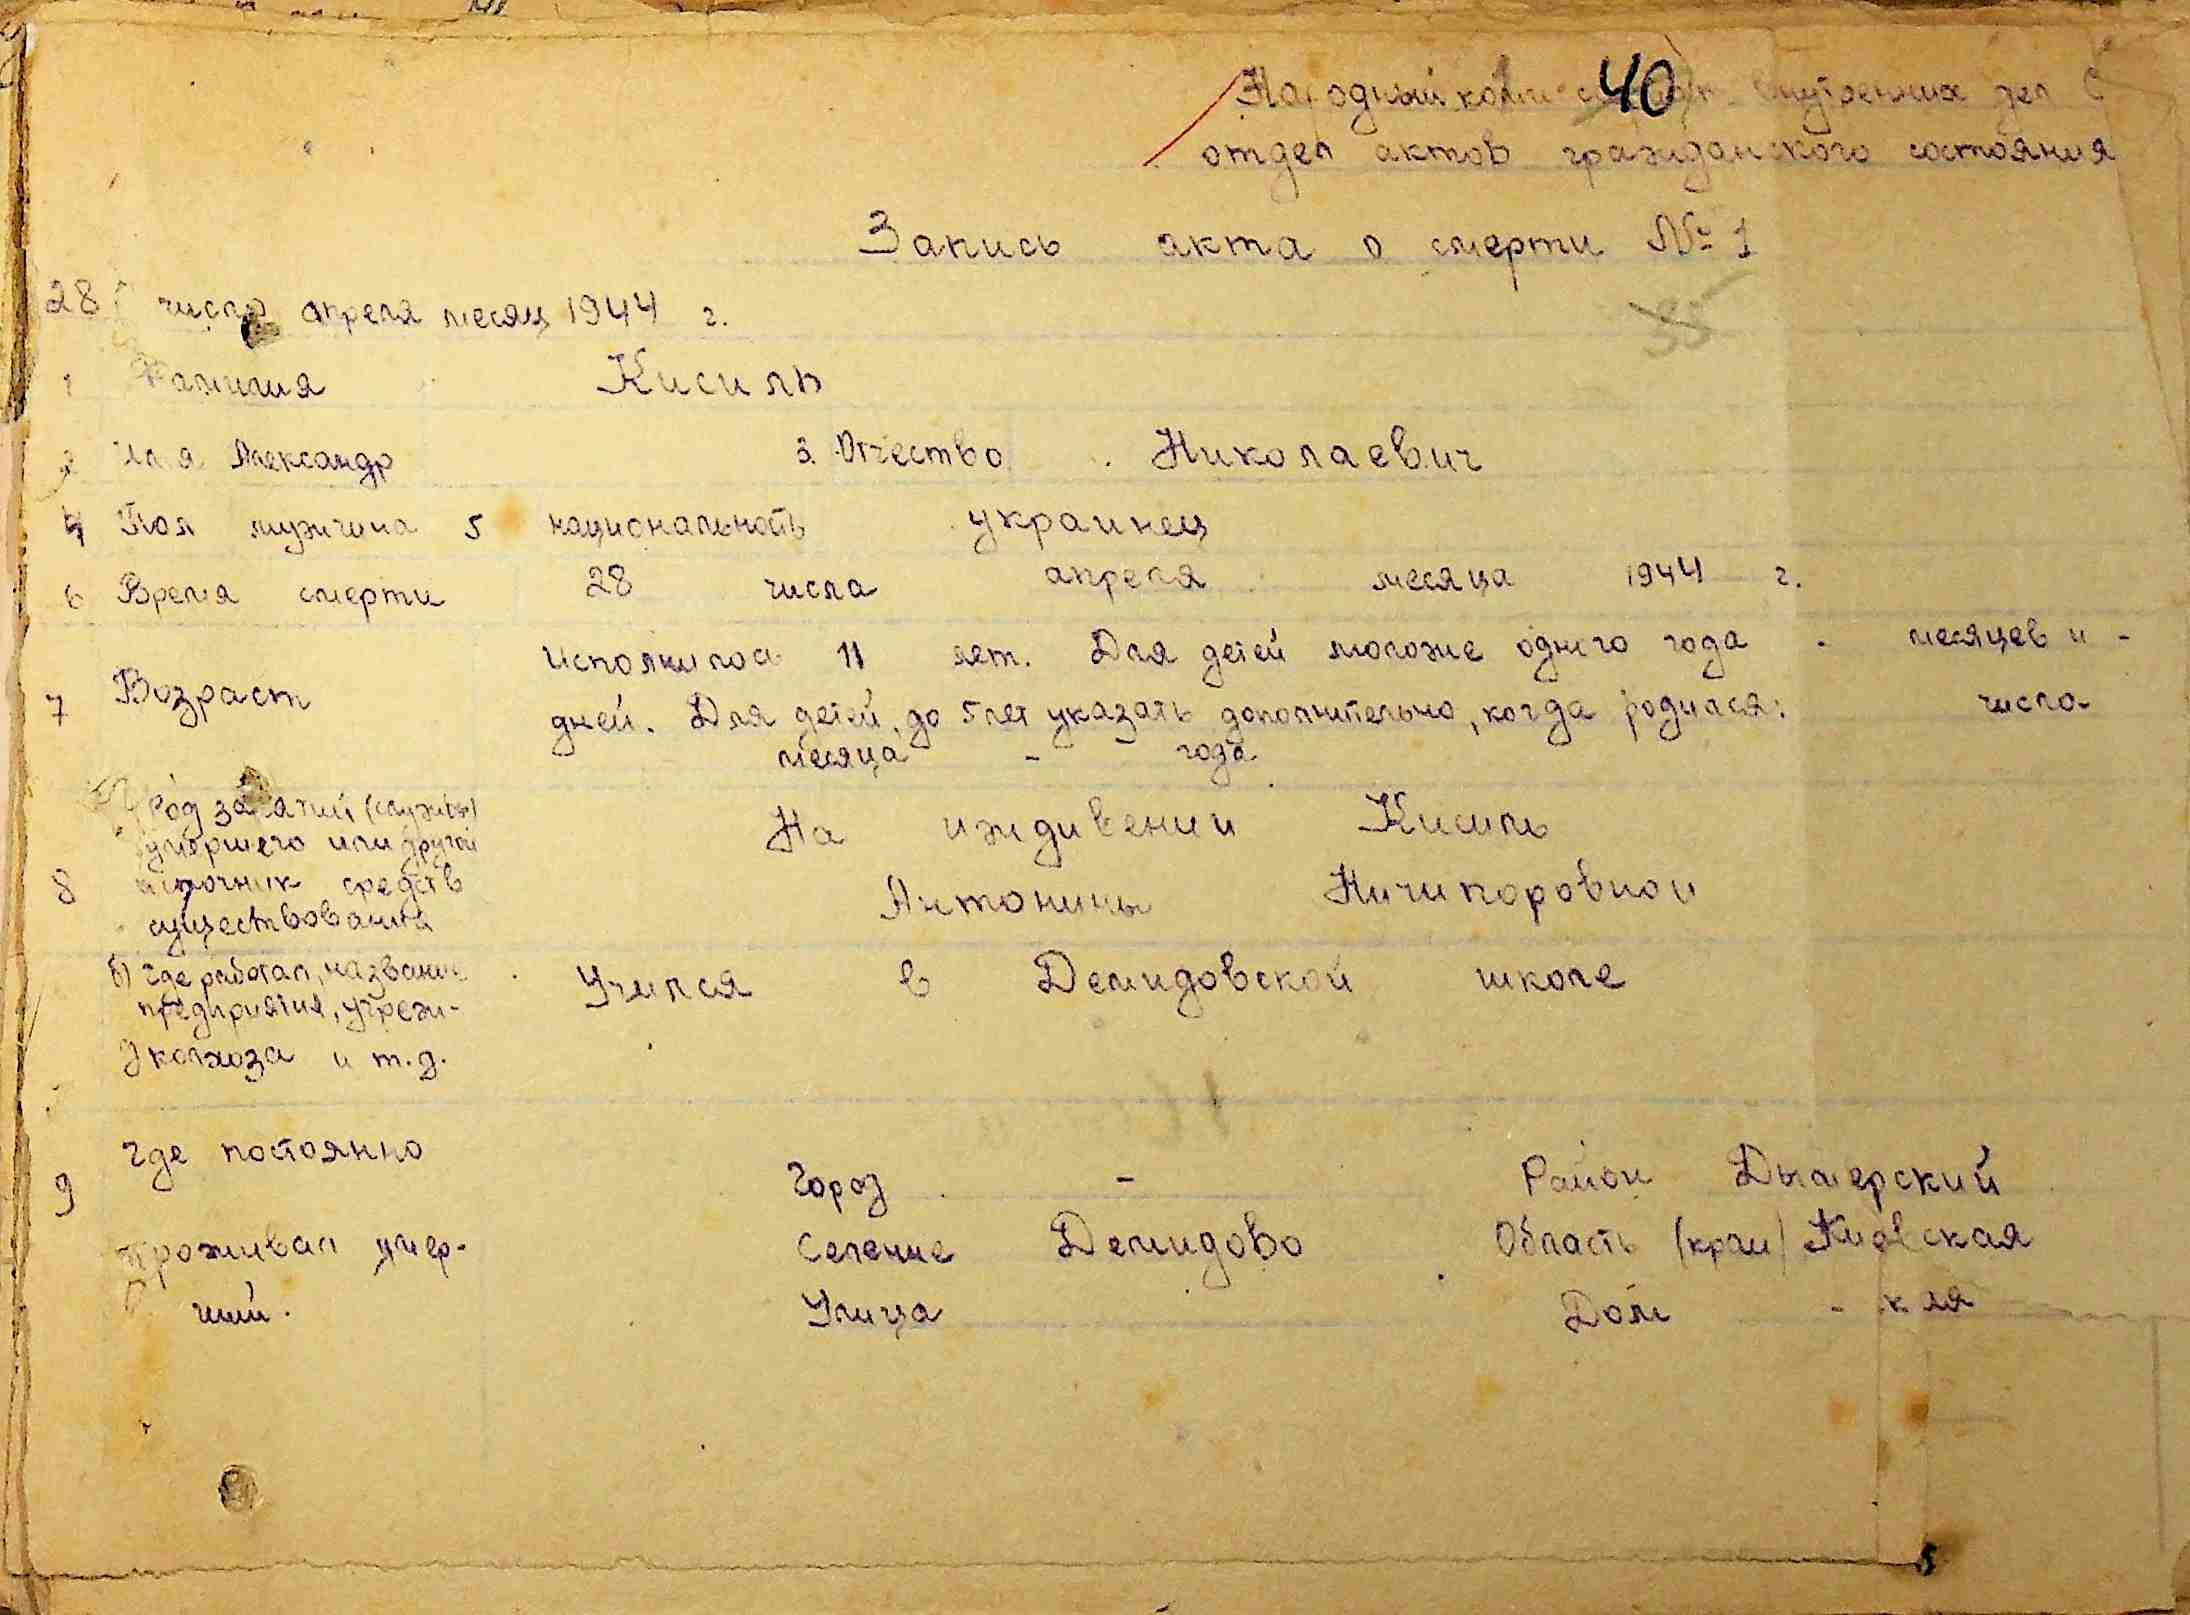 40
Народный внутренних дел
отдел актов гражданского состояния
Запись акта о смерти № 1
28 число апреля месяц 1944 г.
35
1 Фамилия Кисиль
2 Имя Александр 3. Отчество Николаевич
4 Пол мужчина 5 национальность украинец
6 Время смерти 28 числа апреля месяца 1944 г.
Исполнилось 11 лет. Для детей моложе одного года - месяцев и -
7 Возраст
дней. Для детей до 5 лет указать дополнительно, когда родился: числа
месяца - года
Род занятий (службы)
умершего или другой
8 источник средств
существования
На иждивении Кисиль
Антонины Ничипоровной
б) Где работал, название
предприятия, учреж-
колхоза и т.д.
Учился в Демидовской школе
9 Где постоянно
проживал умер-
ший.
Город - Район Дымерский
Селение Демидово Область (край) Киевская
Улица Дом - кля
5